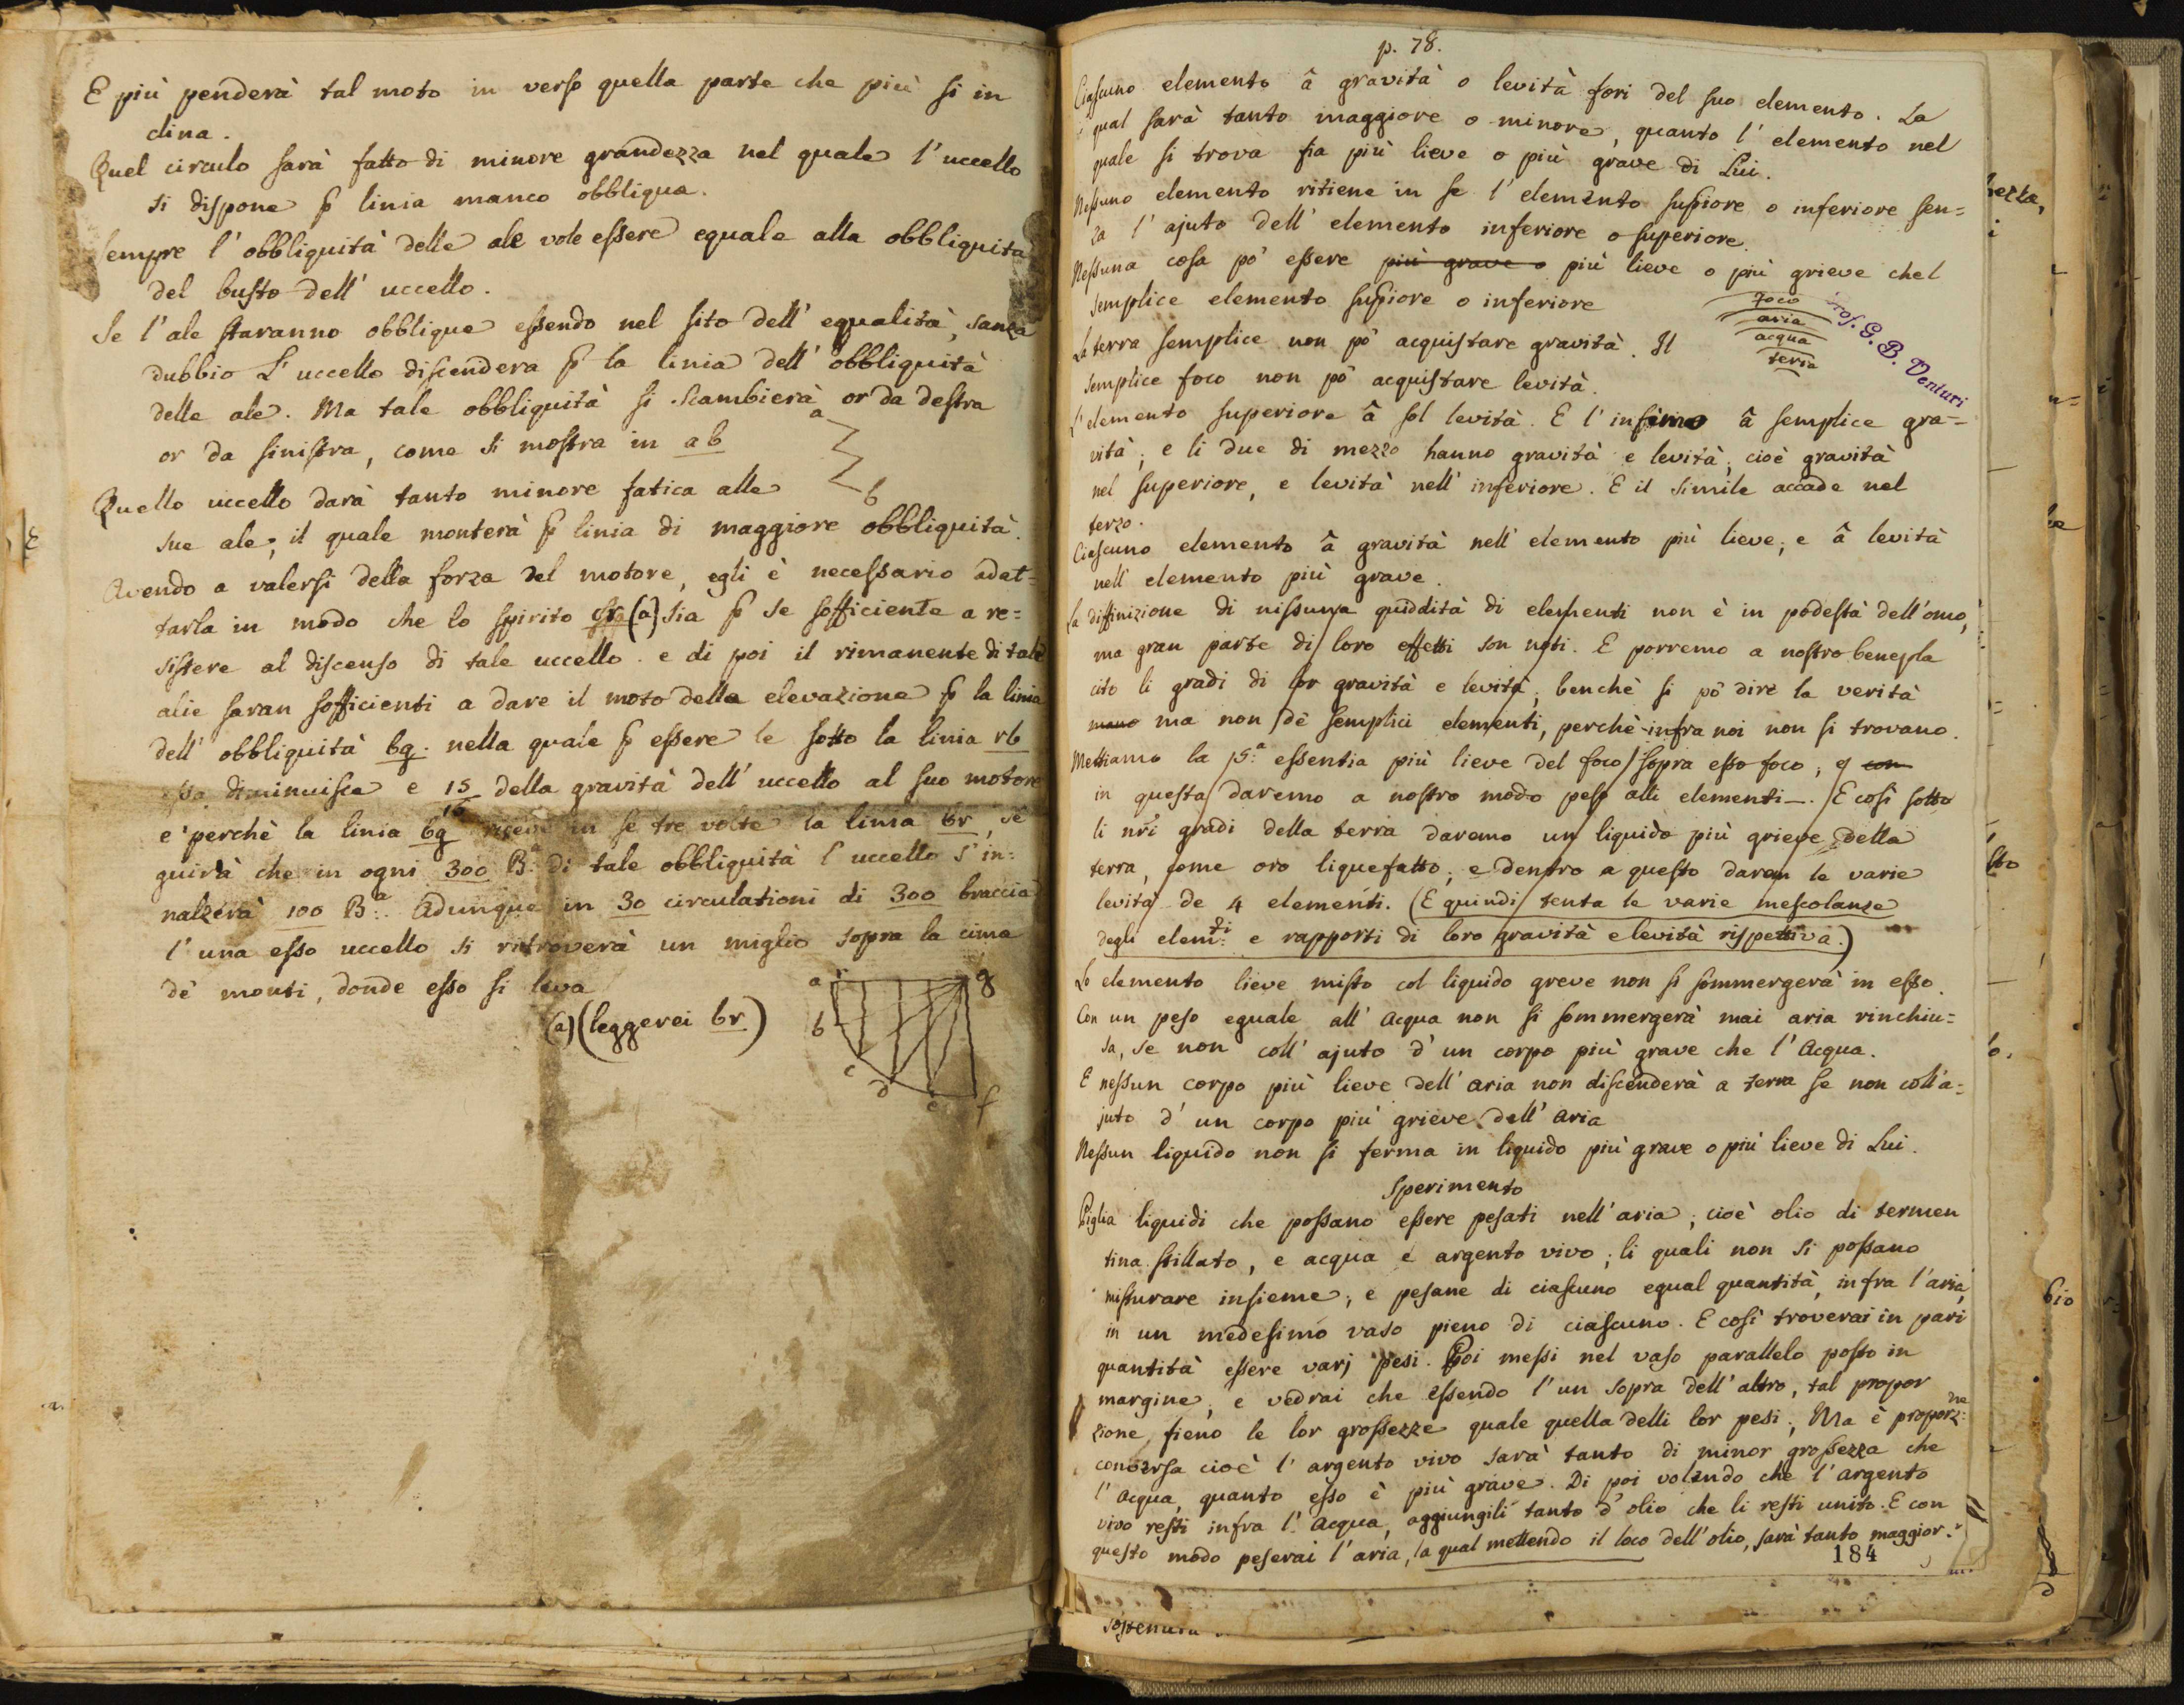 E più penderà tal moto in verso quella parte che più si in
clina.
Quel circulo sarà fatto di minore grandezza nel quale l'uccello
si dispone p linia manco obbliqua.
Sempre l'obbliquità delle ale vole essere equale alla obbliquità
del busto dell'uccello.
Se l'ale staranno obblique essendo nel sito dell'equalità, sanza
dubbio L'uccello discendera p la linia dell'obbliquità
delle ale. Ma tale obbliquità si scambierà or da destra
or da sinistra, come si mostra in ab
a
b
Quello uccello darà tanto minore fatica alle
sue ale; il quale monterà p linia di maggiore obbliquità.
Avendo a valersi della forza del motore, egli è necessario adat=
tarla in modo che lo spirito (a) sia p se sofficiente a re=
sistere al discenso di tale uccello. e di poi il rimanente di tale
alie saran sofficienti a dare il moto della elevazione p la linia
dell'obbliquità bg. nella quale p essere le sotto la linia rb
diminuisce e 15/16 della gravità dell'uccello al suo motore
e perchè la linia bg riceve in se tre volte la linia br, se
guirà che in ogni 300 B.a di tale obbliquità l'uccello s'in=
nalzerà 100 B.a. Adunque in 30 circulationi di 300 braccia
l'una esso uccello si ritroverà un miglio sopra la cima
dè monti, donde esso si leva
(a) (leggerei br)
a r g
b
c
d
e f
p. 78.
Ciascuno elemento â gravità o levità fori del suo elemento. La
qual sarà tanto maggiore o minore, quanto l'elemento nel
quale si trova fia più lieve o più grave di Lui.
Nessuno elemento ritiene in se l'elemento supiore o inferiore sen=
za l'ajuto dell'elemento inferiore o superiore.
Nessuna cosa pò essere più grave o più lieve o più grieve chel
semplice elemento supiore o inferiore
foco
aria
acqua
terra
Prof. G. B. Venturi
La terra semplice non pô acquistare gravità. Il
semplice foco non pô acquistare levità.
L'elemento superiore â sol levità. E l'infimo â semplice gra=
vità; e li due di mezzo hanno gravità e levità; cioè gravità
nel superiore, e levità nell'inferiore. E il simile accade nel
terzo.
Ciascuno elemento â gravità nell'elemento più lieve; e â levità
nell'elemento più grave.
La diffinizione di nissuna quiddità di elementi non è in podestà dell'omo,
ma gran parte di loro effetti son noti. E porremo a nostro benepla
cito li gradi di lor gravità e levità; benchè si pô dire la verità
ma non dè semplici elementi, perchè infra noi non si trovano.
Mettiamo la 5.a essentia più lieve del foco sopra esso foco; e con
in questa daremo a nostro modo peso alli elementi. E così sotto
li nri gradi della terra daremo un liquido più grieve della
terra, come oro liquefatto; e dentro a questo daren le varie
levità de 4 elementi. (E quindi tenta le varie mescolanze
degli elem.ti e rapporti di loro gravità e levità rispettiva.)
Lo elemento lieve misto col liquido greve non si sommergerà in esso.
Con un peso eguale all'Acqua non si sommergerà mai aria rinchiu=
sa, se non coll'ajuto d'un corpo più grave che l'Acqua.
E nessun corpo più lieve dell'aria non discenderà a terra se non coll'a=
juto d'un corpo più grieve dell'Aria
Nessun liquido non si ferma in liquido più grave o più lieve di Lui.
Sperimento
Piglia liquidi che possano essere pesati nell'aria; cioè olio di termen
tina stillato, e acqua e argento vivo; li quali non si possano
misturare insieme; e pesane di ciascuno equal quantità, infra l'aria,
in un medesimo vaso pieno di ciascuno. E così troverai in pari
quantità essere varj pesi. Poi messi nel vaso parallelo posto in
margine; e vedrai che essendo l'un sopra dell'altro, tal propor
zione fieno le lor grossezze quale quella delli lor pesi; Ma è proporz:ne
conversa cioè l'argento vivo sarà tanto di minor grossezza che
l'Acqua, quanto esso è più grave. Di poi volendo che l'argento
vivo resti infra l'Acqua, aggiungili tanto d'olio che li resti unito. E con
questo modo peserai l'aria, la qual mettendo il loco dell'olio, sarà tanto maggior.
184